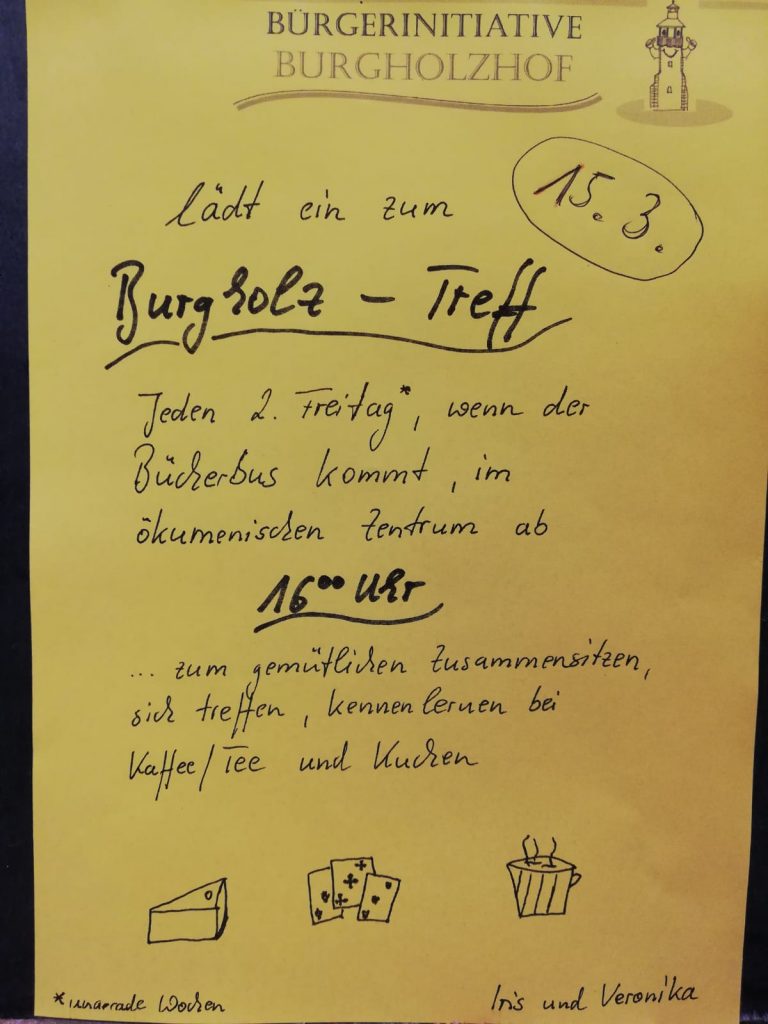 BÜRGERINITIATIVE
BURGHOLZHOF
15.3.
lädt ein zum
Burgholz – Treff
Jeden 2. Freitag*, wenn der
Bücherbus kommt, im
ökumenischen Zentrum ab
16⁰⁰ Uhr
... zum gemütlichen Zusammensitzen,
sich treffen, kennenlernen bei
Kaffee/Tee und Kuchen
*ungerade Wochen
Iris und Veronika